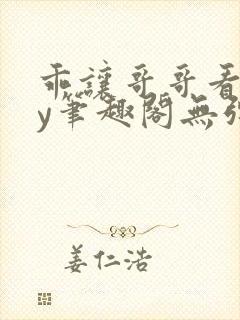 乖讓哥哥看
y筆趣閣無彈
姜仁浩